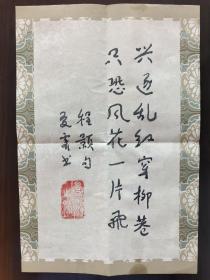 兴逐乱红穿柳巷
只恐风花一片飞
程颢句
书